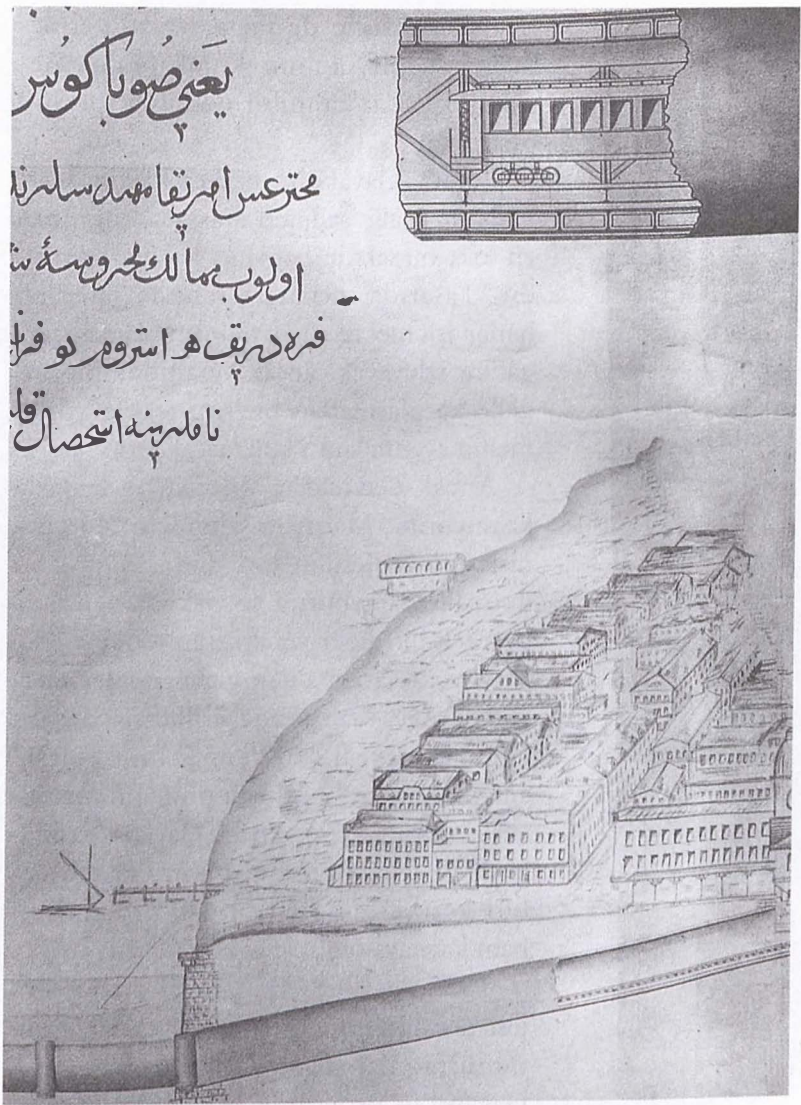 یعنی صو با کوبر
مخترعی امریقا مهندسلرند
اولوب ممالك محروسهٔ
فره دریق هو استروم
ناملرینه استحصال قلـ